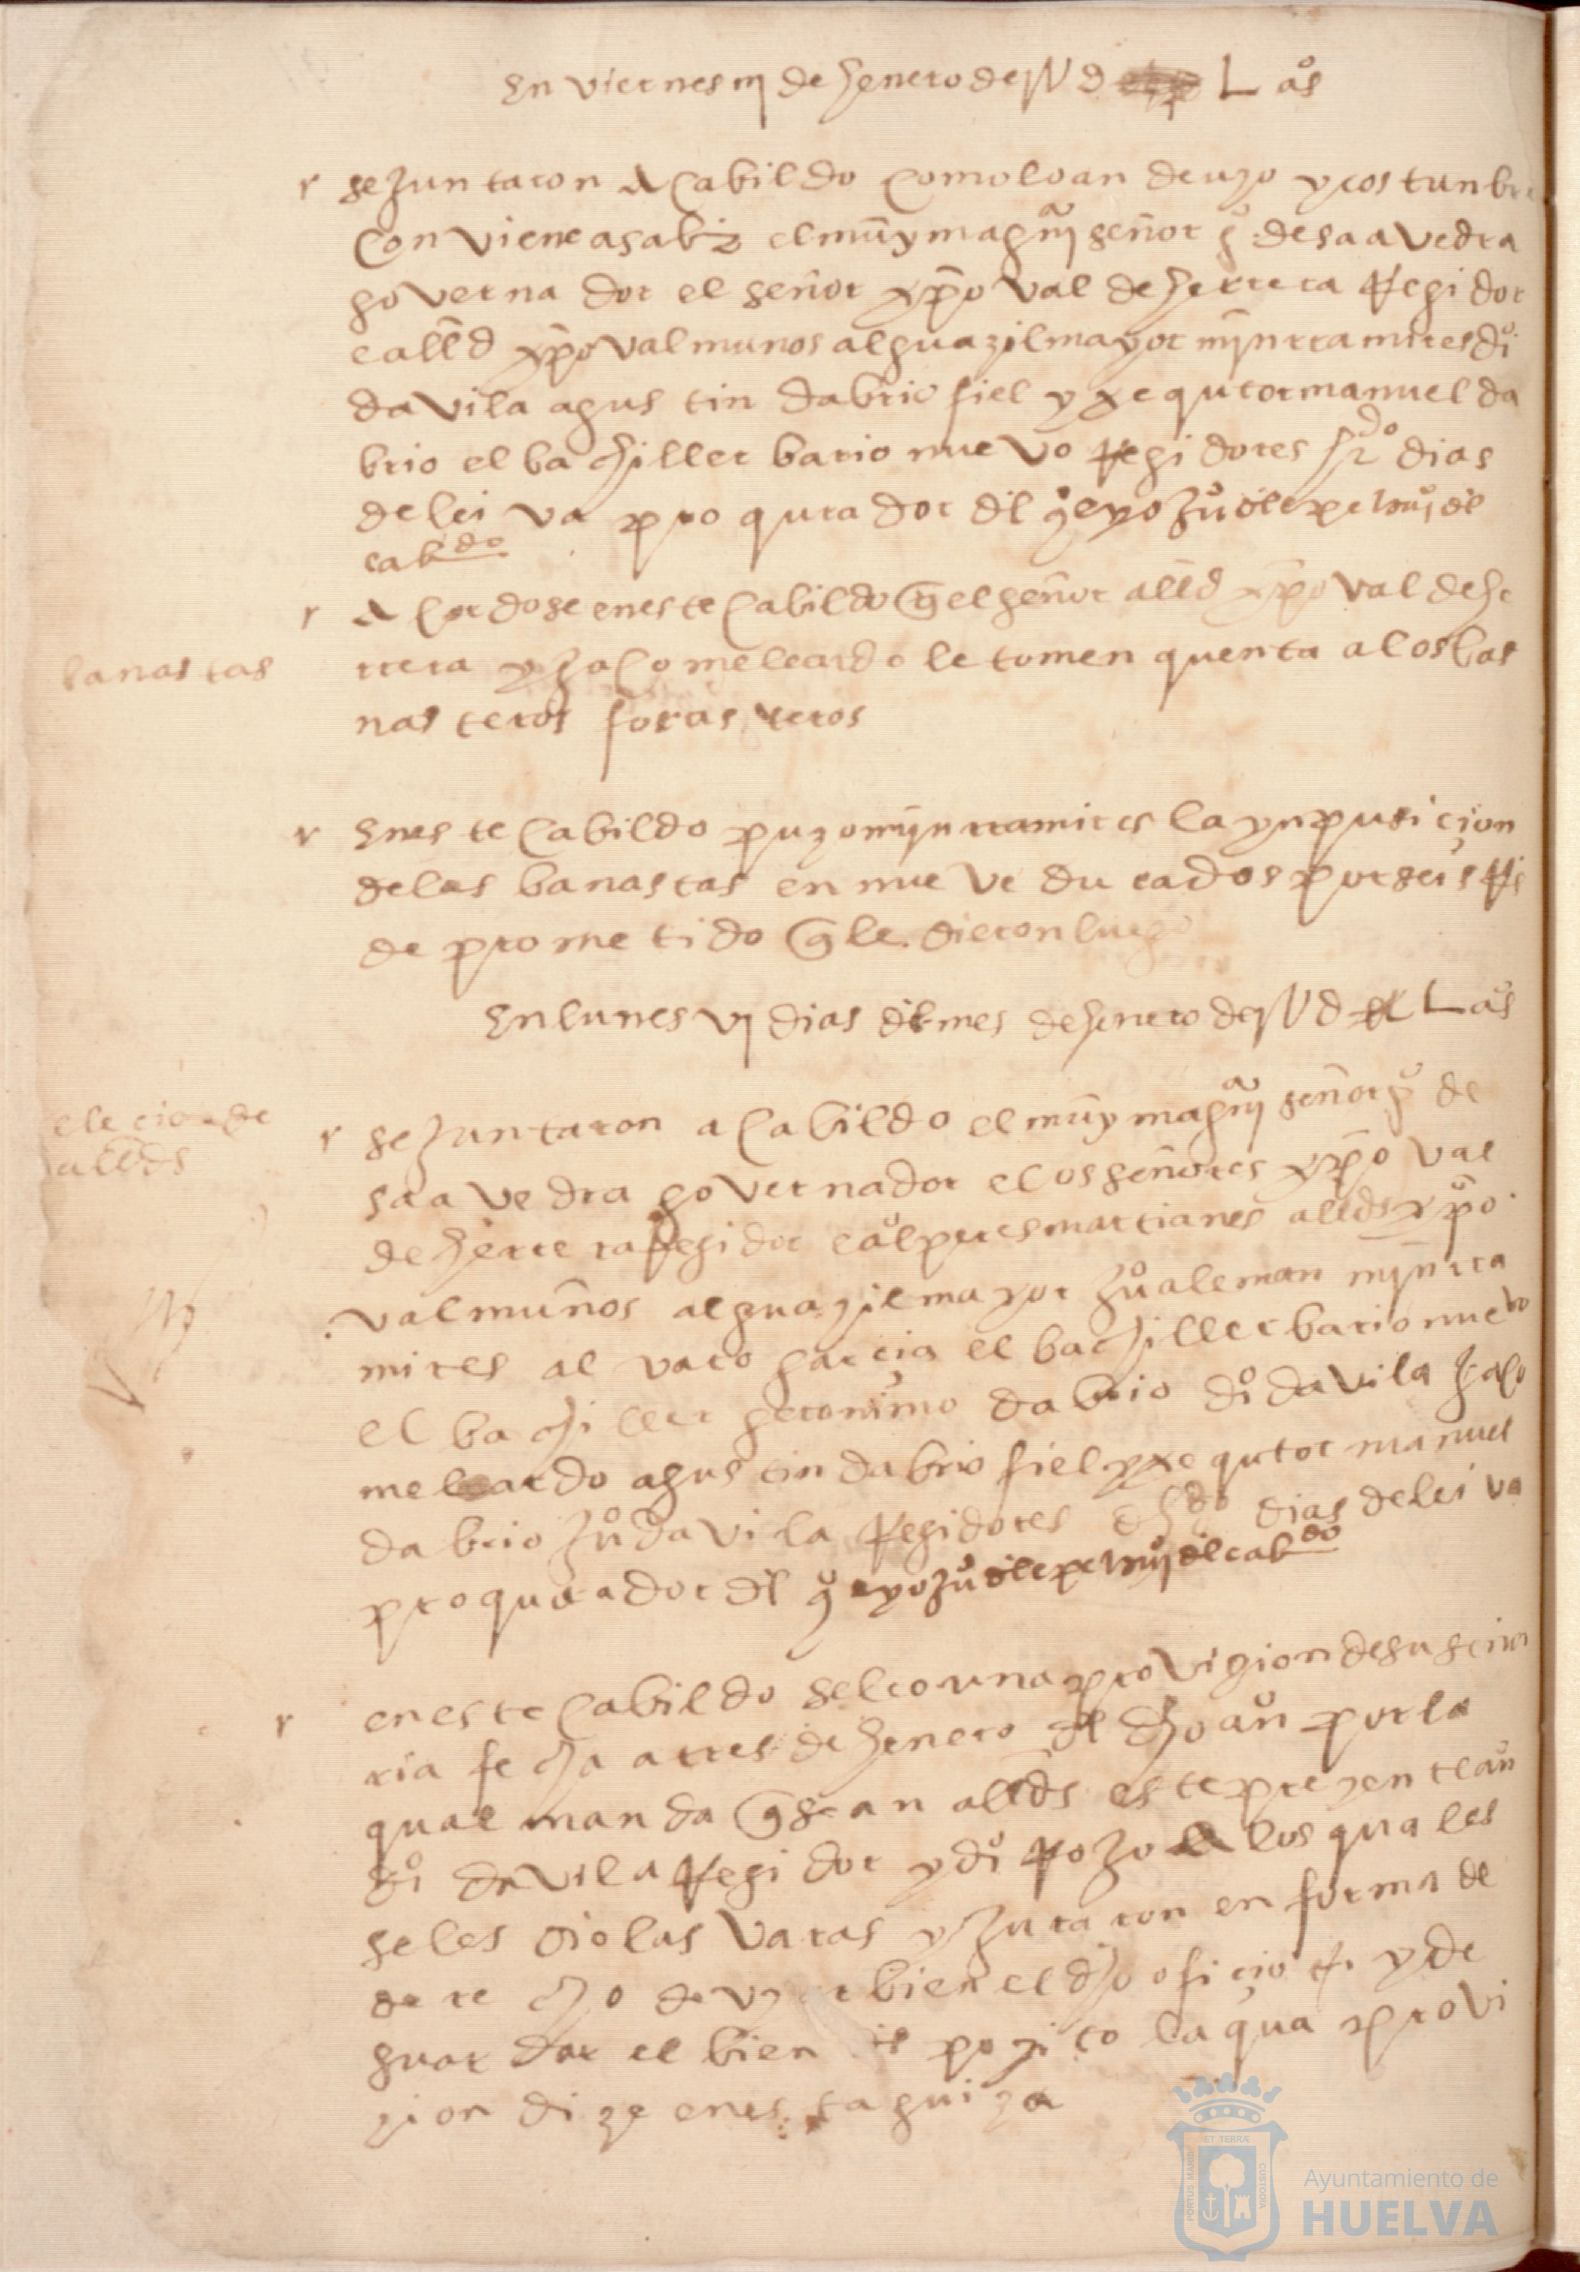 En viernes iij de henero de jU d L aos
se juntaron a cabildo como lo an de uzo y costunbre
conviene a saber el muy magco señor go de saavedra
governador el señor xpoval de herrera Regidor
e alld xpoval munos alguazil mayor mjn rramires do
davila agustin dabrio fiel y xequtor manuel da
brio el bachiller barionuevo Regidores hrdo dias
de leiva proqurador dl qo e yo juo de lepe
cabdo
acordose en este cabildo q el señor alld xpoval de he
rrera y jaco melcardo le tomen quenta a los bas
nasteros forasteros
banastas
en este cabildo puzo mjn rramires la ynpusicion
de las banastas en nueve ducados por seis Rs
de prometido q le dieron luego
En lunes vj dias del mes de henero de jU d L aos
elecion de
allds
se juntaron a cabildo el muy magco señor go de
saavedra governador e los señores xpoval
de herrera Regidor peres martianes allds xpo
val muños alguazil mayor juo aleman mjn rra
mires alvaro garcia el bachiller barionuevo
el bachiller geronimo dabrio do davila jaco
melcardo agustin dabrio fiel y xequtor manuel
dabrio juo davila Regidores dias de leiva
proqurador dl qo e yo juo de lepe del cabdo
en este cabildo se leo una provizion de su seño
ria fecha a tres de henero dl dho año por la
qual manda q sean allds este prezente año
do davila Regidor y do Rojo a los quales
se les dio las varas y juraron en forma de
derecho de uzar bien el dho oficio y de
guardar el bien pozito la qua provi
zion dize en esta guiza
Ayuntamiento de
HUELVA
PORTUS MARIS
ET TERRÆ
CUSTODIA